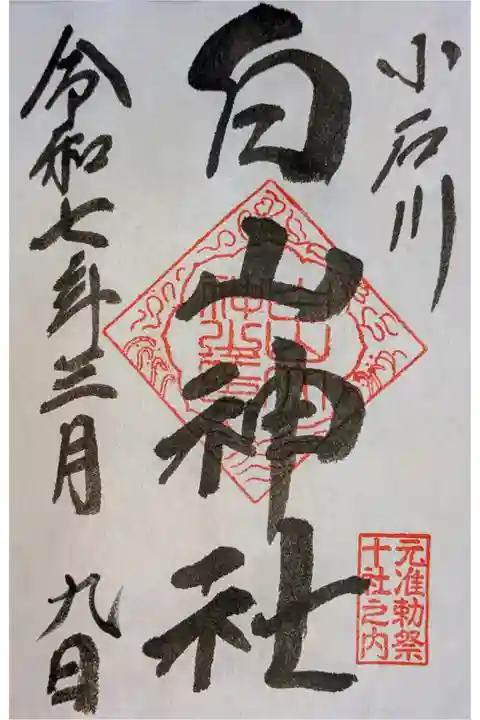 小石川
元准勅祭
十社之内
白山神社
令和七年三月九日